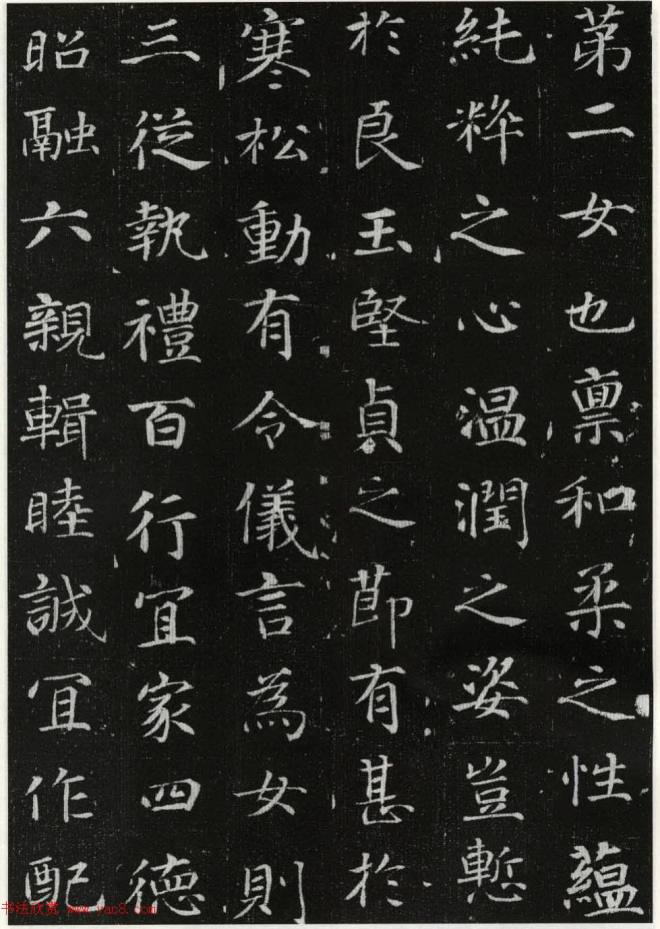 苐二女也禀和柔之性蘊
純粹之心温潤之姿豈慙
於良玉堅貞之莭有甚於
寒松動有令儀言為女則
三從執禮百行冝家四德
昭融六親輯睦誠冝作配
书法欣赏 www.yac8.com